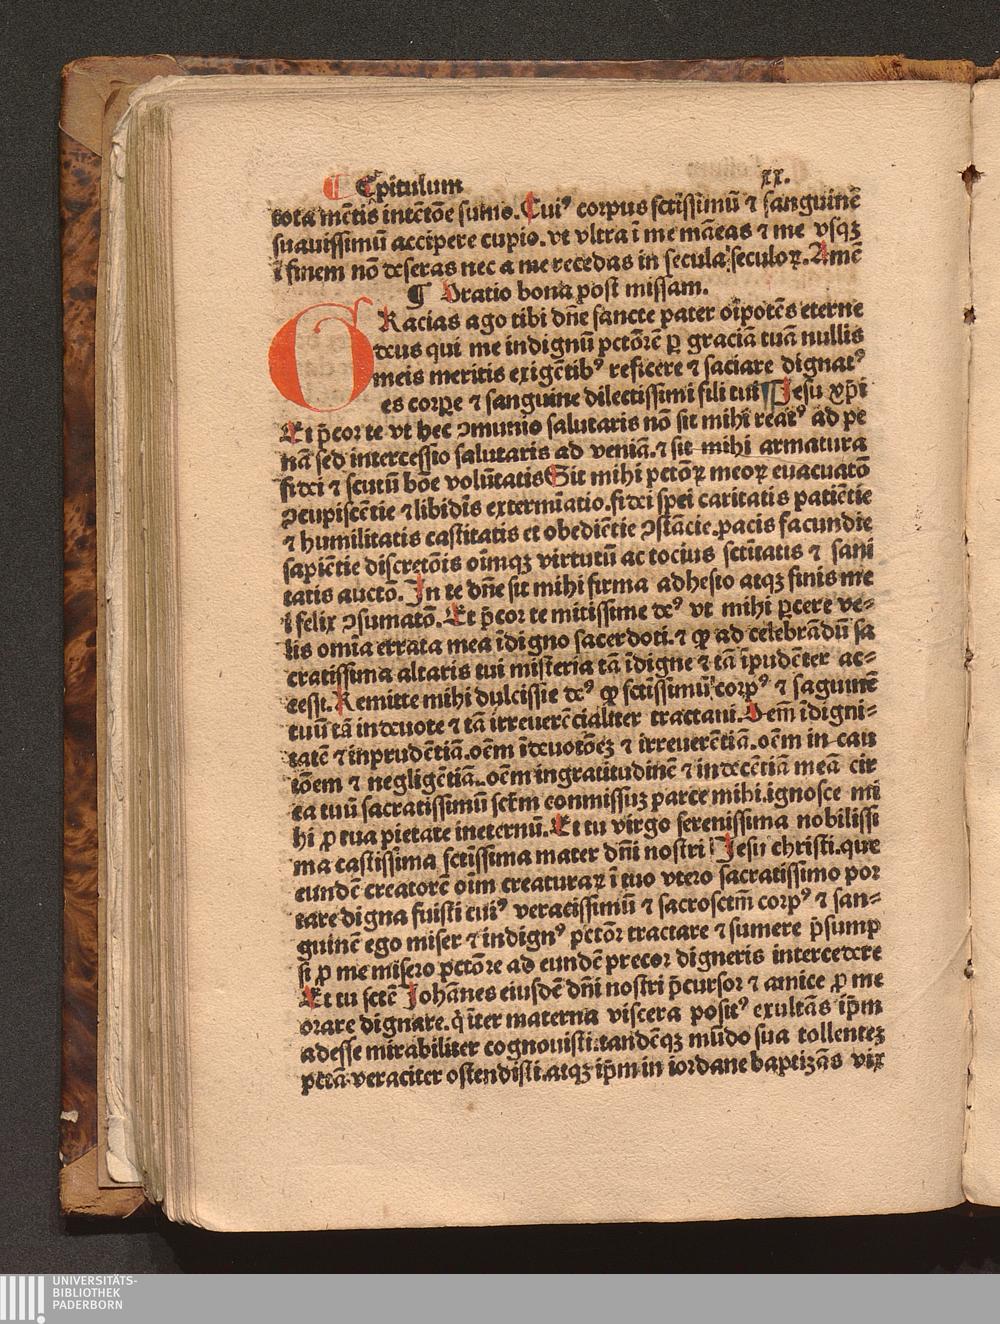 ¶ Capitulum xx.
tota mētis intētōe sumo. Cuiꝰ corpus sctissimū ⁊ sanguinē
suauissimū accipere cupio. vt vltra ī me māeas ⁊ me vsqꝫ
ī finem nō deseras nec a me recedas in secula seculoꝝ. Amē
¶ Oratio bona post missam.
GRacias ago tibi dn̄e sancte pater oīpotēs eterne
deus qui me indignū pctōrē ꝑ graciā tuā nullis
meis meritis exigētibꝰ reficere ⁊ saciare dignatꝰ
es corpe ⁊ sanguine dilectissimi fili tui Jesu xp̄i
Et p̄cor te vt hec ꝯmunio salutaris nō sit mihi reatꝰ ad pe
nā sed intercessio salutaris ad veniā. ⁊ sit mihi armatura
fidei ⁊ scutū bōe volūtatis Sit mihi pctōꝝ meoꝝ euacuatō
ꝯcupiscētie ⁊ libidīs extermīatio. fidei spei caritatis patiētie
⁊ humilitatis castitatis et obediētie ꝯstācie. pacis facundie
sapiētie discretōis oīmqꝫ virtutū ac tocius sctītatis ⁊ sani
tatis aucto. In te dn̄e sit mihi firma adhesio atqꝫ finis me
ī felix ꝯsumatō. Et p̄cor te mitissime deꝰ vt mihi ꝑcere ve-
lis omīa errata mea īdigno sacerdoti. ⁊ ꝙ ad celebrādū sa
cratissima altaris tui misteria tā īdigne ⁊ tā īpudēter ac-
cessi. Remitte mihi dulcissie deꝰ ꝙ sctīssimū corpꝰ ⁊ saguinē
tuū tā indeuote ⁊ tā irreuerēcialiter tractaui. Oem̄ īdigni-
tatē ⁊ inprudētiā. oēm īdeuotōeꝫ ⁊ irreuerētiā. oēm in cau
tōem ⁊ negligētiā. oēm ingratitudinē ⁊ indecētiā meā cir
ca tuū sacratissimū sctm̄ conmissuꝫ parce mihi. ignosce mi
hi ꝓ tua pietate ineternū. Et tu virgo serenissima nobilissi
ma castissima sctīssima mater dn̄i nostri Jesu christi. que
eundē creatorē oīm creaturaꝝ ī tuo vtero sacratissimo por
tare digna fuisti cuiꝰ veracissimū ⁊ sacrosctm̄ corpꝰ ⁊ san-
guinē ego miser ⁊ indignꝰ pctōr tractare ⁊ sumere p̄sump
si ꝓ me misero pctōre ad eundē precor digneris intercedere
Et tu sctē Johānes eiusdē dn̄i nostri p̄cursor ⁊ amice ꝓ me
orare dignare. q̇ īter materna viscera positꝰ exultās ip̄m
adesse mirabiliter cognouisti. tandēqꝫ mūdo sua tollenteꝫ
pctā veraciter ostendisti. atqꝫ ip̄m in iordane baptizās vix
UNIVERSITÄTS-
BIBLIOTHEK
PADERBORN